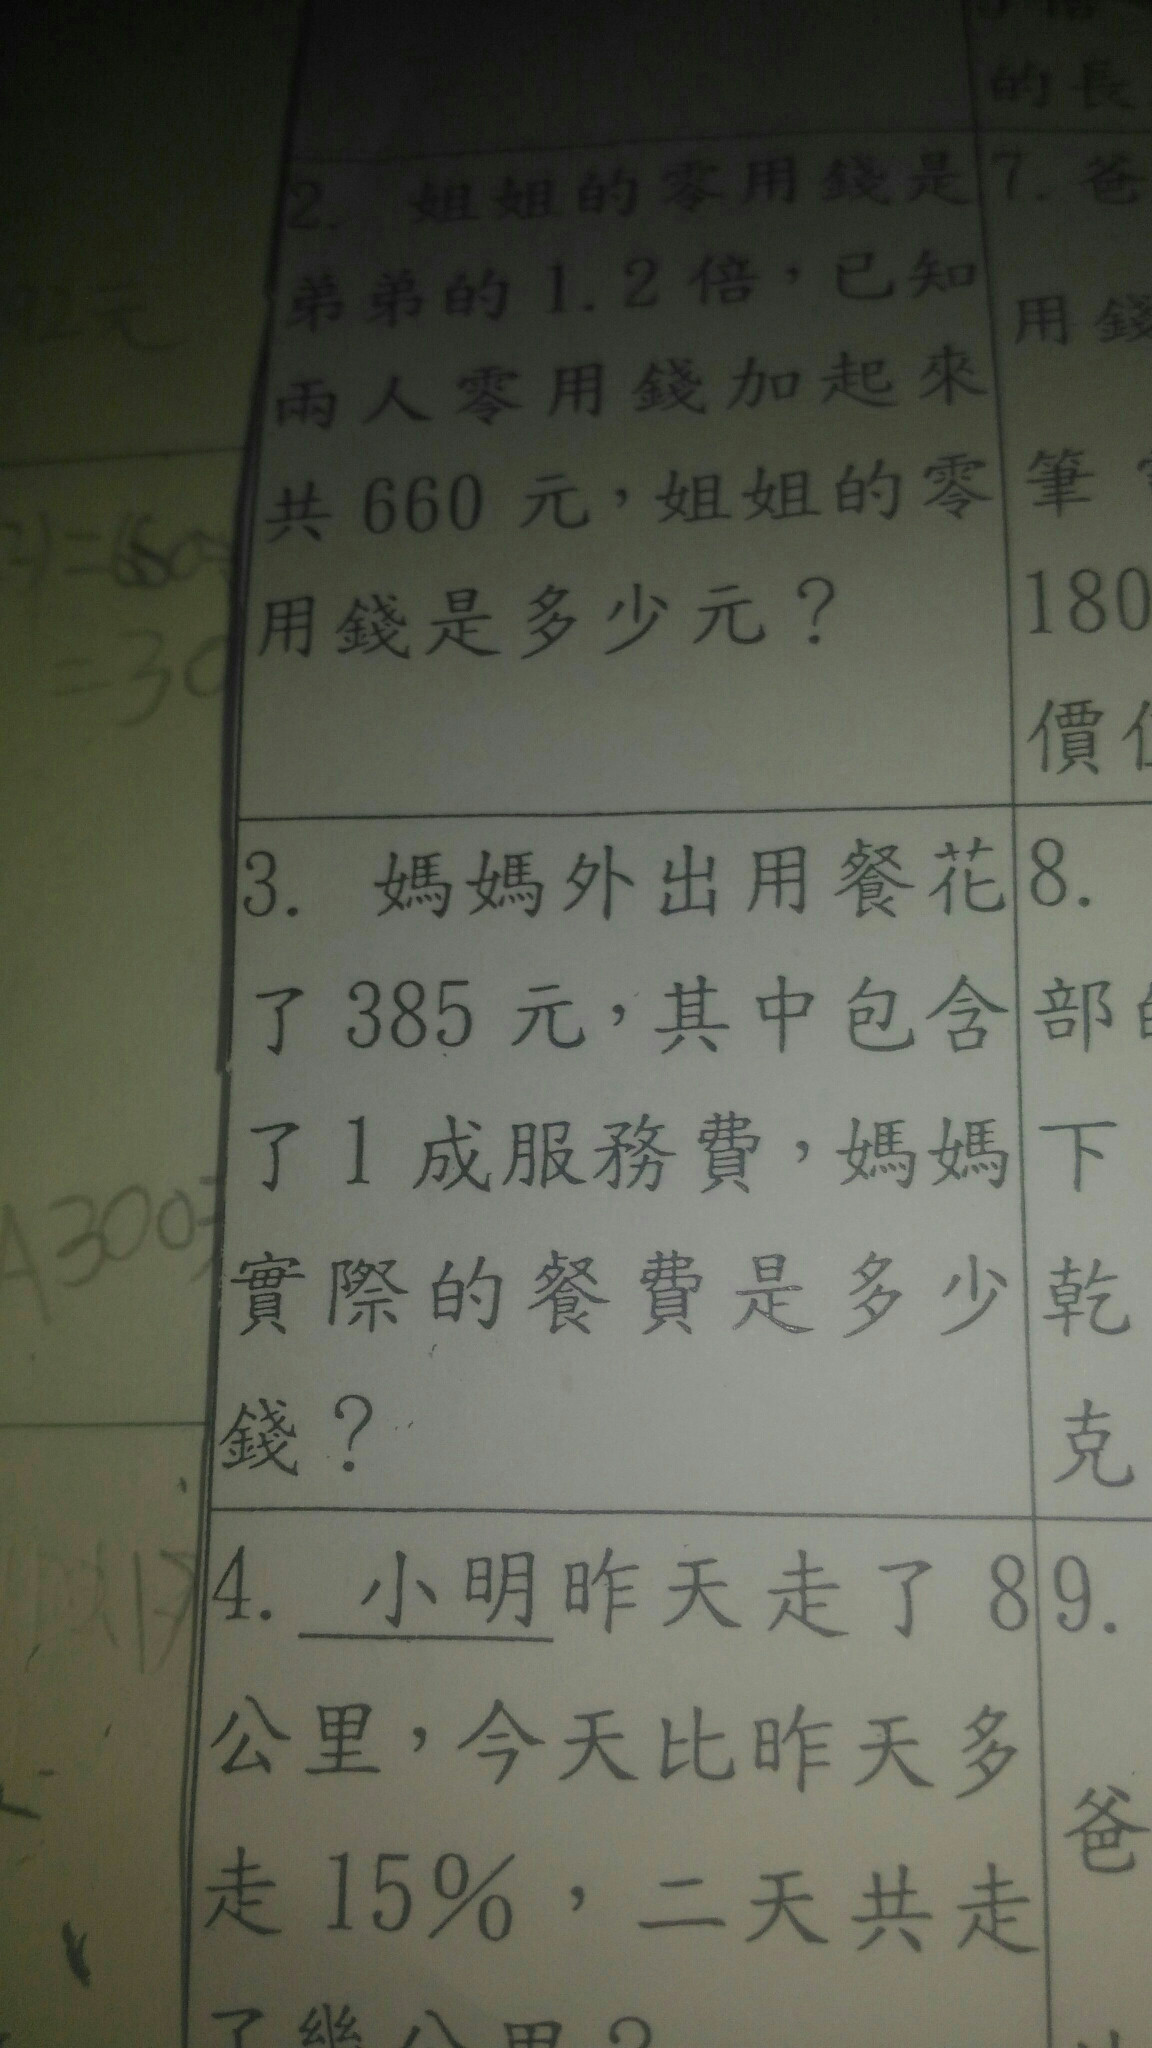 的長
2. 姐姐的零用錢是
弟弟的1.2倍，已知
兩人零用錢加起來
共 660 元，姐姐的零
用錢是多少元？
3. 媽媽外出用餐花
了 385 元，其中包含
了 1 成服務費，媽媽
實際的餐費是多少
錢？
4. 小明昨天走了 8
公里，今天比昨天多
走 15%，二天共走
了幾公里？
7. 爸
用錢
筆
180
價
8.
部
下
乾
克
9.
爸
元
=30
A300